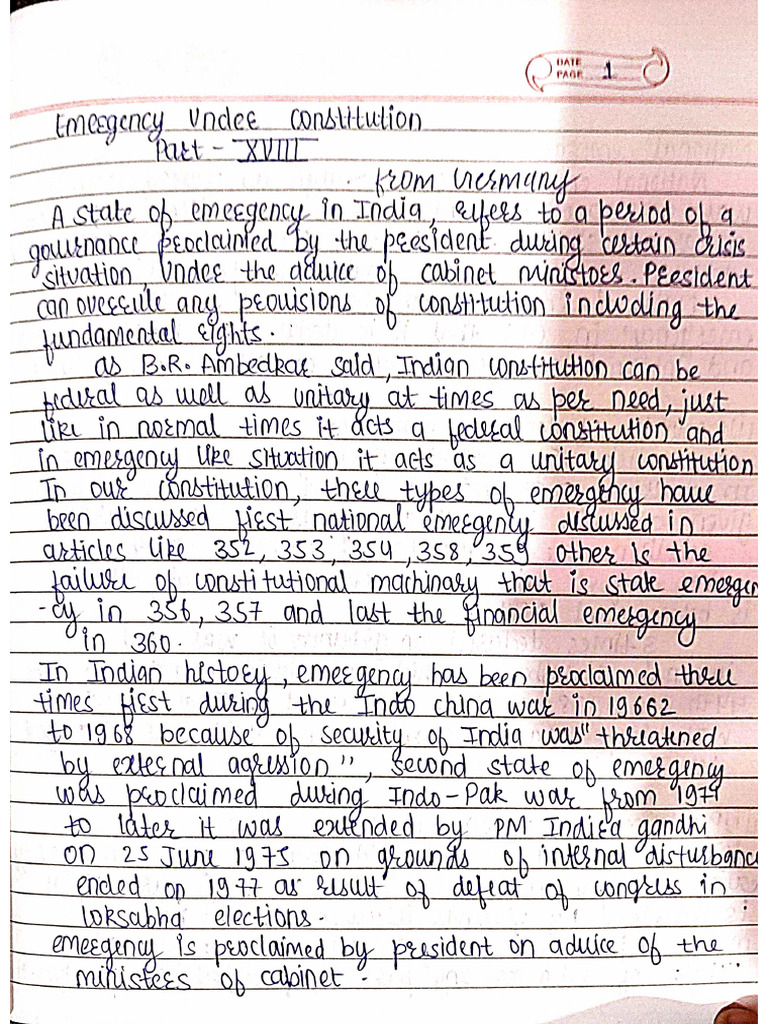 DATE
PAGE 1
Emergency Under Constitution
Part - XVIII
from Germany
A state of emergency in India, refers to a period of a
governance proclaimted by the president during certain crisis
situation, under the advice of cabinet ministors. President
can overrule any provisions of constitution including the
fundamental rights.
as B.R. Ambedkar said, Indian constitution can be
federal as well as unitary at times as per need, just
like in normal times it acts a federal constitution and
in emergency like situation it acts as a unitary constitution
In our constitution, three types of emergency have
been discussed first national emergency discussed in
articles like 352, 353, 354, 358, 359 other is the
failure of constitutional machinary that is state emergen
-cy in 356, 357 and last the financial emergency
in 360.
In Indian history, emergency has been proclaimed three
times first during the Indo china war in 19662
to 1968 because of security of India was "threatned
by external agression", second state of emergency
was proclaimed during Indo-Pak war from 1971
to later it was extended by PM Indira gandhi
on 25 June 1975 on grounds of internal disturbanc
ended on 1977 as result of defeat of congress in
loksabha elections.
emergency is proclaimed by president on advice of the
ministers of cabinet.